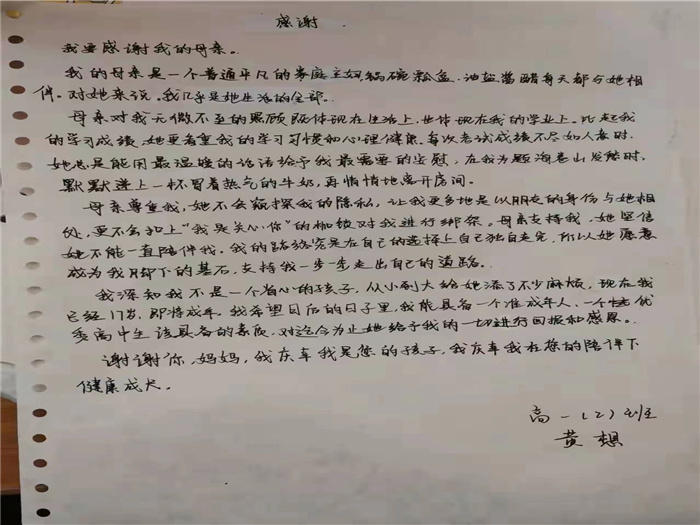 感谢
我要感谢我的母亲。
我的母亲是一个普通平凡的家庭主妇,锅碗瓢盆、油盐酱醋每天都与她相
伴。对她来说,我几乎是她生活的全部。
母亲对我无微不至的照顾既体现在生活上,也体现在我的学业上。比起我
的学习成绩,她更看重我的学习习惯和心理健康。每次考试成绩不尽如人意时,
她总是能用最温暖的话语给予我最需要的安慰,在我为题海卷山发愁时,
默默递上一杯冒着热气的牛奶,再悄悄地离开房间。
母亲尊重我,她不会窥探我的隐私,让我更多地是以朋友的身份与她相
处,更不会扣上“我是关心你”的枷锁对我进行绑架。母亲支持我,她坚信
她不能一直陪伴我。我的路终究是在自己的选择上自己独自走完,所以她愿意
成为我脚下的基石,支持我一步一步走出自己的道路。
我深知我不是一个省心的孩子,从小到大给她添了不少麻烦,现在我
已经17岁,即将成年。我希望日后的日子里,我能具备一个准成年人、一个优
秀高中生该具备的素质,对迄今为止她给予我的一切进行回报和感恩。
谢谢你,妈妈,我庆幸我是您的孩子,我庆幸我在您的陪伴下
健康成长。
高一(2)班
黄想